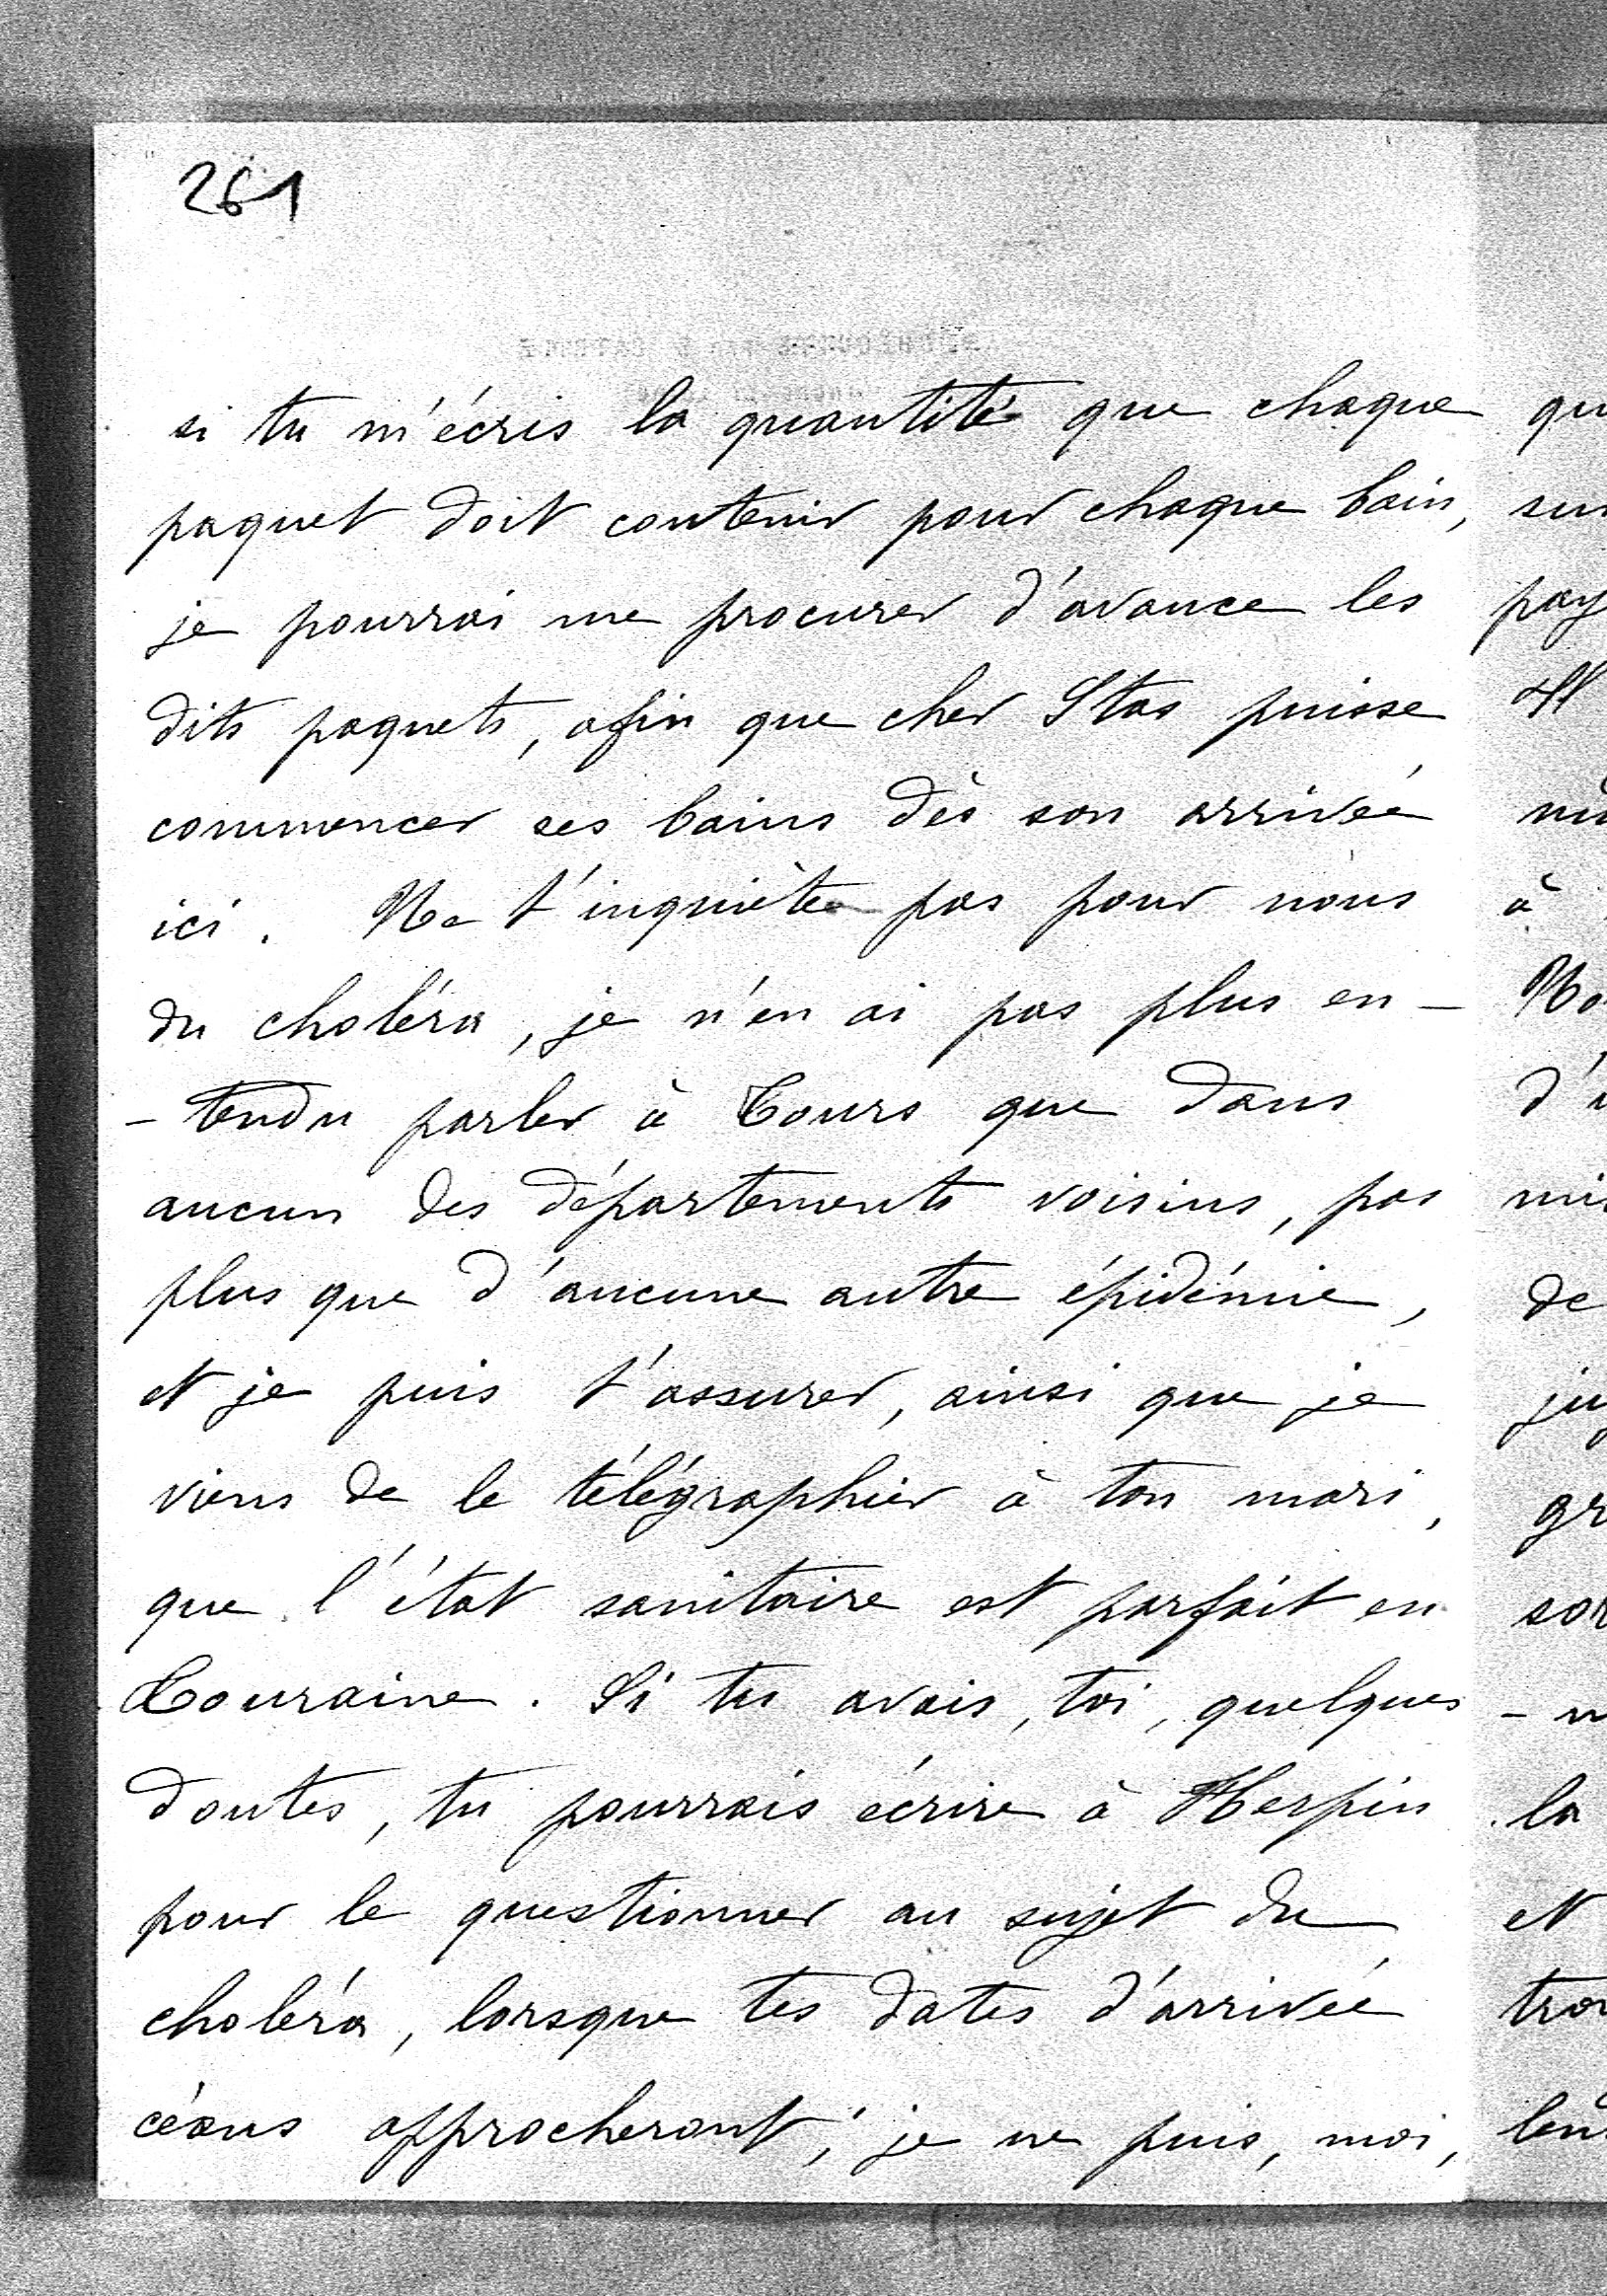 261
si tu m'écris la quantité que chaque
paquet doit contenir pour chaque bain,
je pourrai me procurer d'avance les
dits paquets, afin que cher Stas puisse
commencer ses bains dès son arrivée
ici. Ne t'inquiète pas pour nous
du choléra, je n'en ai pas plus en-
-tendu parler à Tours que dans
aucun des départements voisins, pas
plus que d'aucune autre épidémie,
et je puis t'assurer, ainsi que je
viens de le télégraphier à ton mari,
que l'état sanitaire est parfait en
Touraine. Si tu avais, toi, quelques
doutes, tu pourrais écrire à Herpin
pour le questionner au sujet du
choléra, lorsque tes dates d'arrivée
céans approcheront; je ne puis, moi,